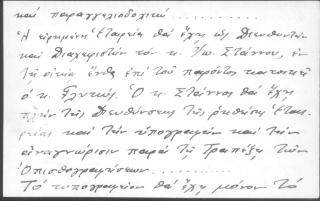 καὶ παραγγελιοδοχικά ..........
Ἡ εἰρημένη Ἑταιρεία θὰ ἔχῃ ὡς Διευθυντὴν
καὶ Διαχειριστὴν τὸν κ. Στάννον, ἐν
τῇ οἰκίᾳ ἔνθα ἐπὶ τοῦ παρόντος κατοικεῖ
ὁ κ. Γλυτσός. Ὁ κ. Στάννος θὰ ἔχῃ
πλὴν τῆς Διευθύνσεως τῆς ῥηθείσης Ἑται-
ρείας καὶ τὴν ὑπογραφὴν καὶ τὴν
ἀναγνώρισιν παρὰ τῇ Τραπέζῃ τῶν
Ὀπισθογραφήσεων ..........
Τὸ τυπογραφεῖον θὰ ἔχῃ μόνον τὸ